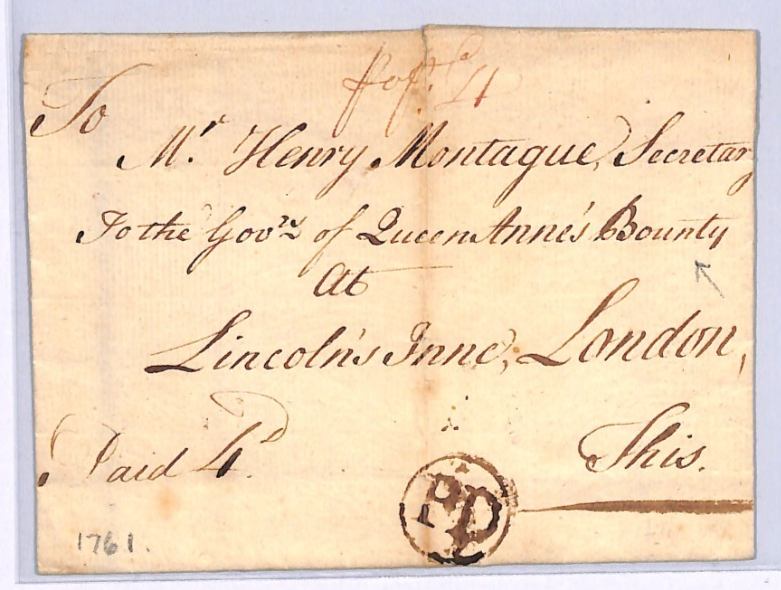 4
To
Mr. Henry Montague, Secretary
To the Govrs of Queen Anne's Bounty
At
Lincoln's Inne, London,
This.
Paid 4d.
PD
1761.